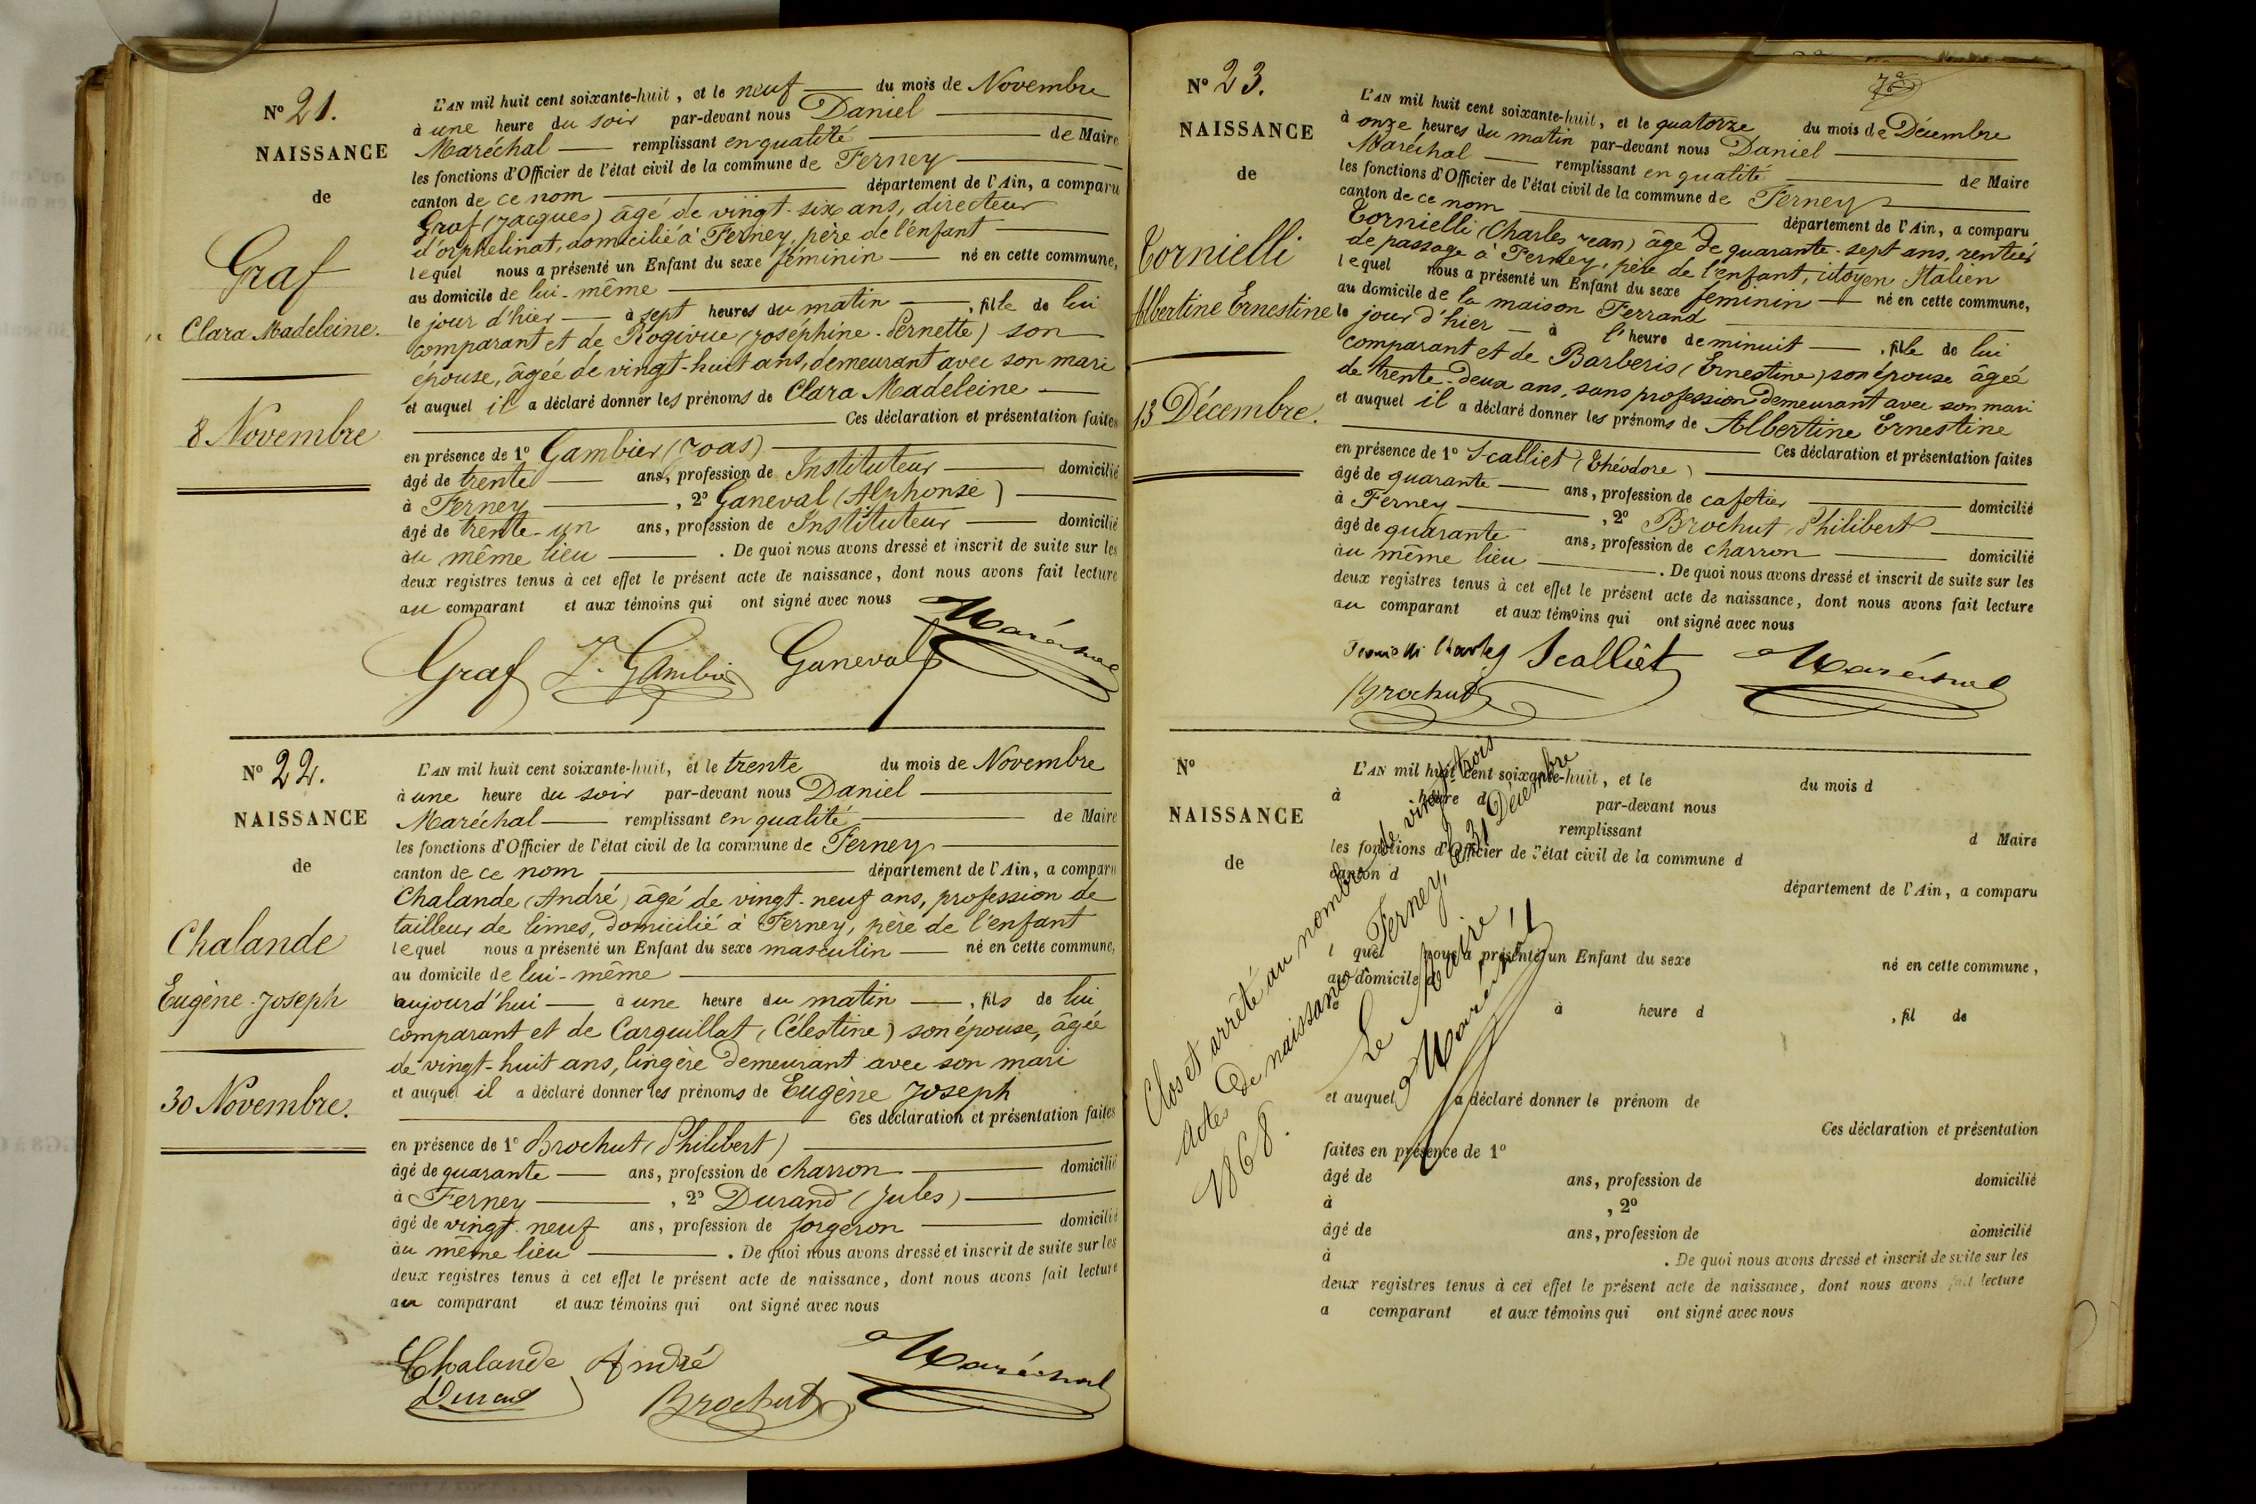 N° 21.
NAISSANCE
de
Graf
Clara Madeleine.
8 Novembre
L'AN mil huit cent soixante-huit, et le neuf du mois de Novembre
à une heure du soir par-devant nous Daniel
Maréchal remplissant en qualité de Maire
les fonctions d'Officier de l'état civil de la commune de Ferney
canton de ce nom département de l'Ain, a comparu
Graf (Jacques) âgé de vingt-six ans, directeur
d'orphelinat, domicilié à Ferney, père de l'enfant
lequel nous a présenté un Enfant du sexe féminin né en cette commune,
au domicile de lui-même
le jour d'hier à sept heures du matin, fille de lui
comparant et de Rogivue (Joséphine-Pernette) son
épouse, âgée de vingt-huit ans, demeurant avec son mari
et auquel il a déclaré donner les prénoms de Clara Madeleine
Ces déclaration et présentation faites
en présence de 1° Gambier (Joas)
âgé de trente ans, profession de Instituteur domicilié
à Ferney, 2° Ganeval (Alphonse)
âgé de trente-un ans, profession de Instituteur domicilié
au même lieu. De quoi nous avons dressé et inscrit de suite sur les
deux registres tenus à cet effet le présent acte de naissance, dont nous avons fait lecture
au comparant et aux témoins qui ont signé avec nous
Graf J. Gambier Ganeval Maréchal
N° 22.
NAISSANCE
de
Chalande
Eugène-Joseph
30 Novembre.
L'AN mil huit cent soixante-huit, et le trente du mois de Novembre
à une heure du soir par-devant nous Daniel
Maréchal remplissant en qualité de Maire
les fonctions d'Officier de l'état civil de la commune de Ferney
canton de ce nom département de l'Ain, a comparu
Chalande (André) âgé de vingt-neuf ans, profession de
tailleur de limes, domicilié à Ferney, père de l'enfant
lequel nous a présenté un Enfant du sexe masculin né en cette commune,
au domicile de lui-même
aujourd'hui à une heure du matin, fils de lui
comparant et de Carquillat (Célestine) son épouse, âgée
de vingt-huit ans, lingère demeurant avec son mari
et auquel il a déclaré donner les prénoms de Eugène Joseph
Ces déclaration et présentation faites
en présence de 1° Brochut (Philibert)
âgé de quarante ans, profession de charron domicilié
à Ferney, 2° Durand (Jules)
âgé de vingt-neuf ans, profession de forgeron domicilié
au même lieu. De quoi nous avons dressé et inscrit de suite sur les
deux registres tenus à cet effet le présent acte de naissance, dont nous avons fait lecture
au comparant et aux témoins qui ont signé avec nous
Chalande André Maréchal
Durand Brochut
N° 23.
NAISSANCE
de
Tornielli
Albertine Ernestine
13 Décembre.
L'AN mil huit cent soixante-huit, et le quatorze du mois de Décembre
à onze heures du matin par-devant nous Daniel
Maréchal remplissant en qualité de Maire
les fonctions d'Officier de l'état civil de la commune de Ferney
canton de ce nom département de l'Ain, a comparu
Tornielli (Charles Jean) âgé de quarante-sept ans, rentier
de passage à Ferney, père de l'enfant, citoyen Italien
lequel nous a présenté un Enfant du sexe féminin né en cette commune,
au domicile de la maison Ferrand
le jour d'hier à l'heure de minuit, fille de lui
comparant et de Barberis (Ernestine) son épouse âgée
de trente-deux ans, sans profession demeurant avec son mari
et auquel il a déclaré donner les prénoms de Albertine Ernestine
Ces déclaration et présentation faites
en présence de 1° Scalliet (Théodore)
âgé de quarante ans, profession de cafetier domicilié
à Ferney, 2° Brochut Philibert
âgé de quarante ans, profession de charron domicilié
au même lieu. De quoi nous avons dressé et inscrit de suite sur les
deux registres tenus à cet effet le présent acte de naissance, dont nous avons fait lecture
au comparant et aux témoins qui ont signé avec nous
Charles Scalliet Maréchal
Brochut
N°
NAISSANCE
de
L'AN mil huit cent soixante-huit, et le du mois d
à heure d par-devant nous
remplissant d Maire
les fonctions d'Officier de l'état civil de la commune d
canton d département de l'Ain, a comparu
l quel nous a présenté un Enfant du sexe né en cette commune,
au domicile d
le à heure d, fil de
et auquel a déclaré donner le prénom de
Ces déclaration et présentation
faites en présence de 1°
âgé de ans, profession de domicilié
à, 2°
âgé de ans, profession de domicilié
à. De quoi nous avons dressé et inscrit de suite sur les
deux registres tenus à cet effet le présent acte de naissance, dont nous avons fait lecture
a comparant et aux témoins qui ont signé avec nous
Clos et arrêté au nombre de vingt trois
actes de naissance Ferney, le 31 Décembre
1868.
Le Maire
Maréchal